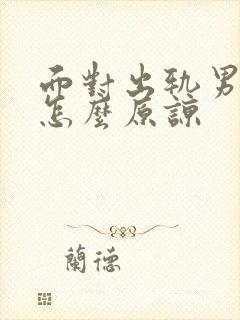 而對出軌男
怎麼原諒
蘭德